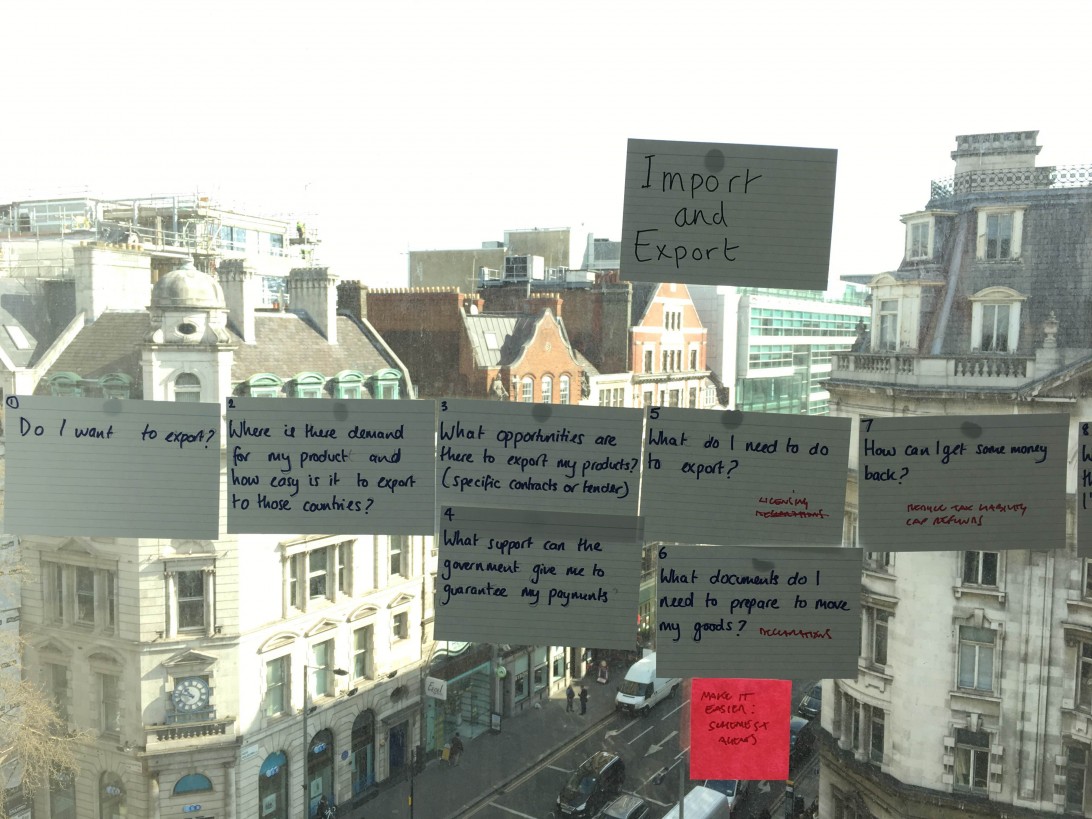 Import
and
Export
1
Do I want to export?
2
Where is there demand
for my product and
how easy is it to export
to those countries?
3
What opportunities are
there to export my products?
(specific contracts or tender)
4
What support can the
government give me to
guarantee my payments
5
What do I need to do
to export?
LICENSING
DECLARATIONS
6
What documents do I
need to prepare to move
my goods?
DECLARATIONS
7
How can I get some money
back?
REDUCE TAX LIABILITY
CAP REFUNDS
8
MAKE IT
EASIER:
SCHEMES +
AGENTS